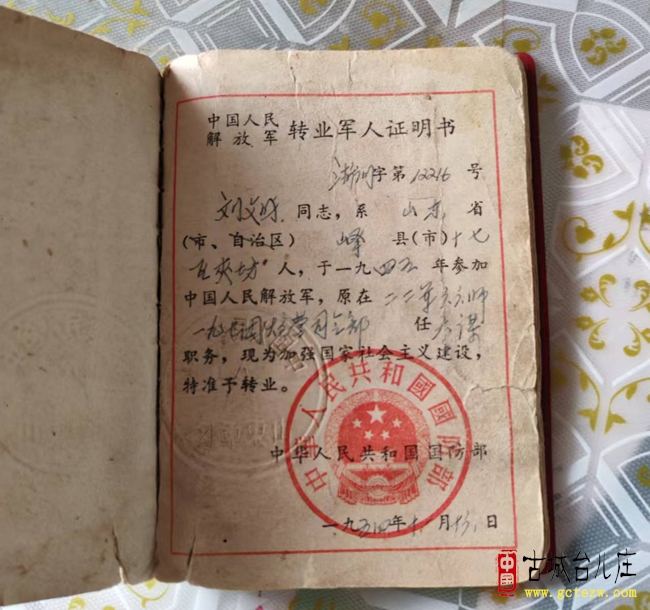 中国人民
解放军 转业军人证明书
字第12216号
刘文 同志,系 山东 省
(市、自治区) 峄 县(市)十七
区 坊 人,于一九四五年参加
中国人民解放军,原在二二军六六师
一九 团 营司令部 任 参谋
职务,现为加强国家社会主义建设,
特准予转业。
中华人民共和国国防部
一九五四年十一月 日
中華人民共和國國防部
中国 古城台儿庄
www.gctezw.com